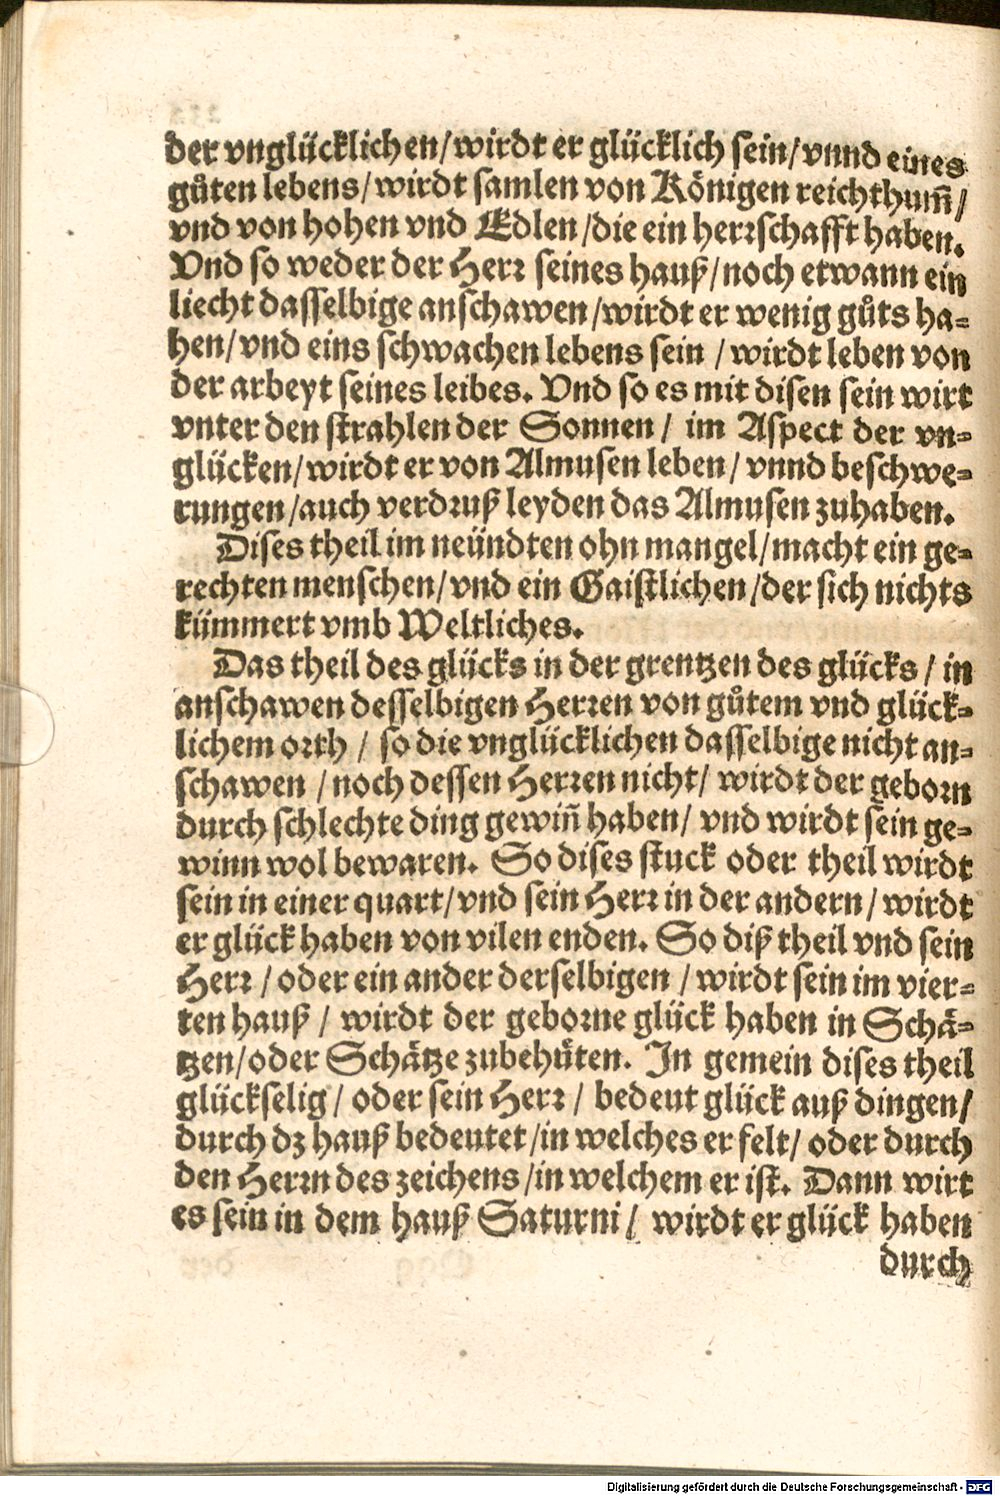 der vnglücklichen/wirdt er glücklich sein/vnnd eines
gůten lebens/wirdt samlen von Königen reichthum̃/
vnd von hohen vnd Edlen/die ein herrschafft haben.
Vnd so weder der Herr seines hauß/noch etwann ein
liecht dasselbige anschawen/wirdt er wenig gůts ha-
hen/vnd eins schwachen lebens sein / wirdt leben von
der arbeyt seines leibes. Vnd so es mit disen sein wirt
vnter den strahlen der Sonnen / im Aspect der vn-
glücken/wirdt er von Almusen leben/ vnnd beschwe-
rungen/auch verdruß leyden das Almusen zuhaben.
Dises theil im neündten ohn mangel/macht ein ge-
rechten menschen/vnd ein Gaistlichen/der sich nichts
kümmert vmb Weltliches.
Das theil des glücks in der grentzen des glücks / in
anschawen desselbigen Herren von gůtem vnd glück-
lichem orth / so die vnglücklichen dasselbige nicht an-
schawen / noch dessen Herren nicht/ wirdt der geborn
durch schlechte ding gewiñ haben/ vnd wirdt sein ge-
winn wol bewaren. So dises stuck oder theil wirdt
sein in einer quart/vnd sein Herr in der andern/ wirdt
er glück haben von vilen enden. So diß theil vnd sein
Herr / oder ein ander derselbigen / wirdt sein im vier-
ten hauß / wirdt der geborne glück haben in Schä-
tzen/oder Schätze zubehüten. In gemein dises theil
glückselig/ oder sein Herr / bedeut glück auß dingen/
durch dz hauß bedeutet/in welches er felt/ oder durch
den Herrn des zeichens/in welchem er ist. Dann wirt
es sein in dem hauß Saturni/ wirdt er glück haben
durch
Digitalisierung gefördert durch die Deutsche Forschungsgemeinschaft - DFG